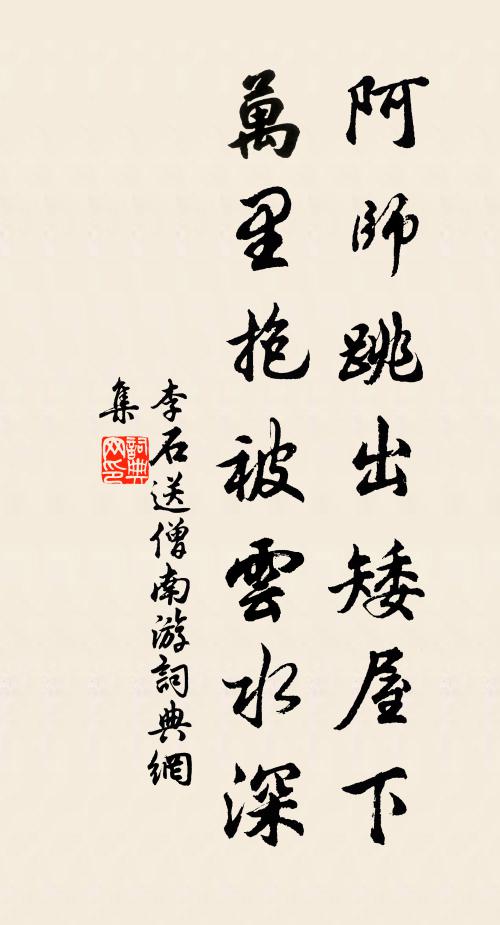 阿師跳出矮屋下
萬里抱被雲水深
李石送僧南游詞典網
集
詞典网印